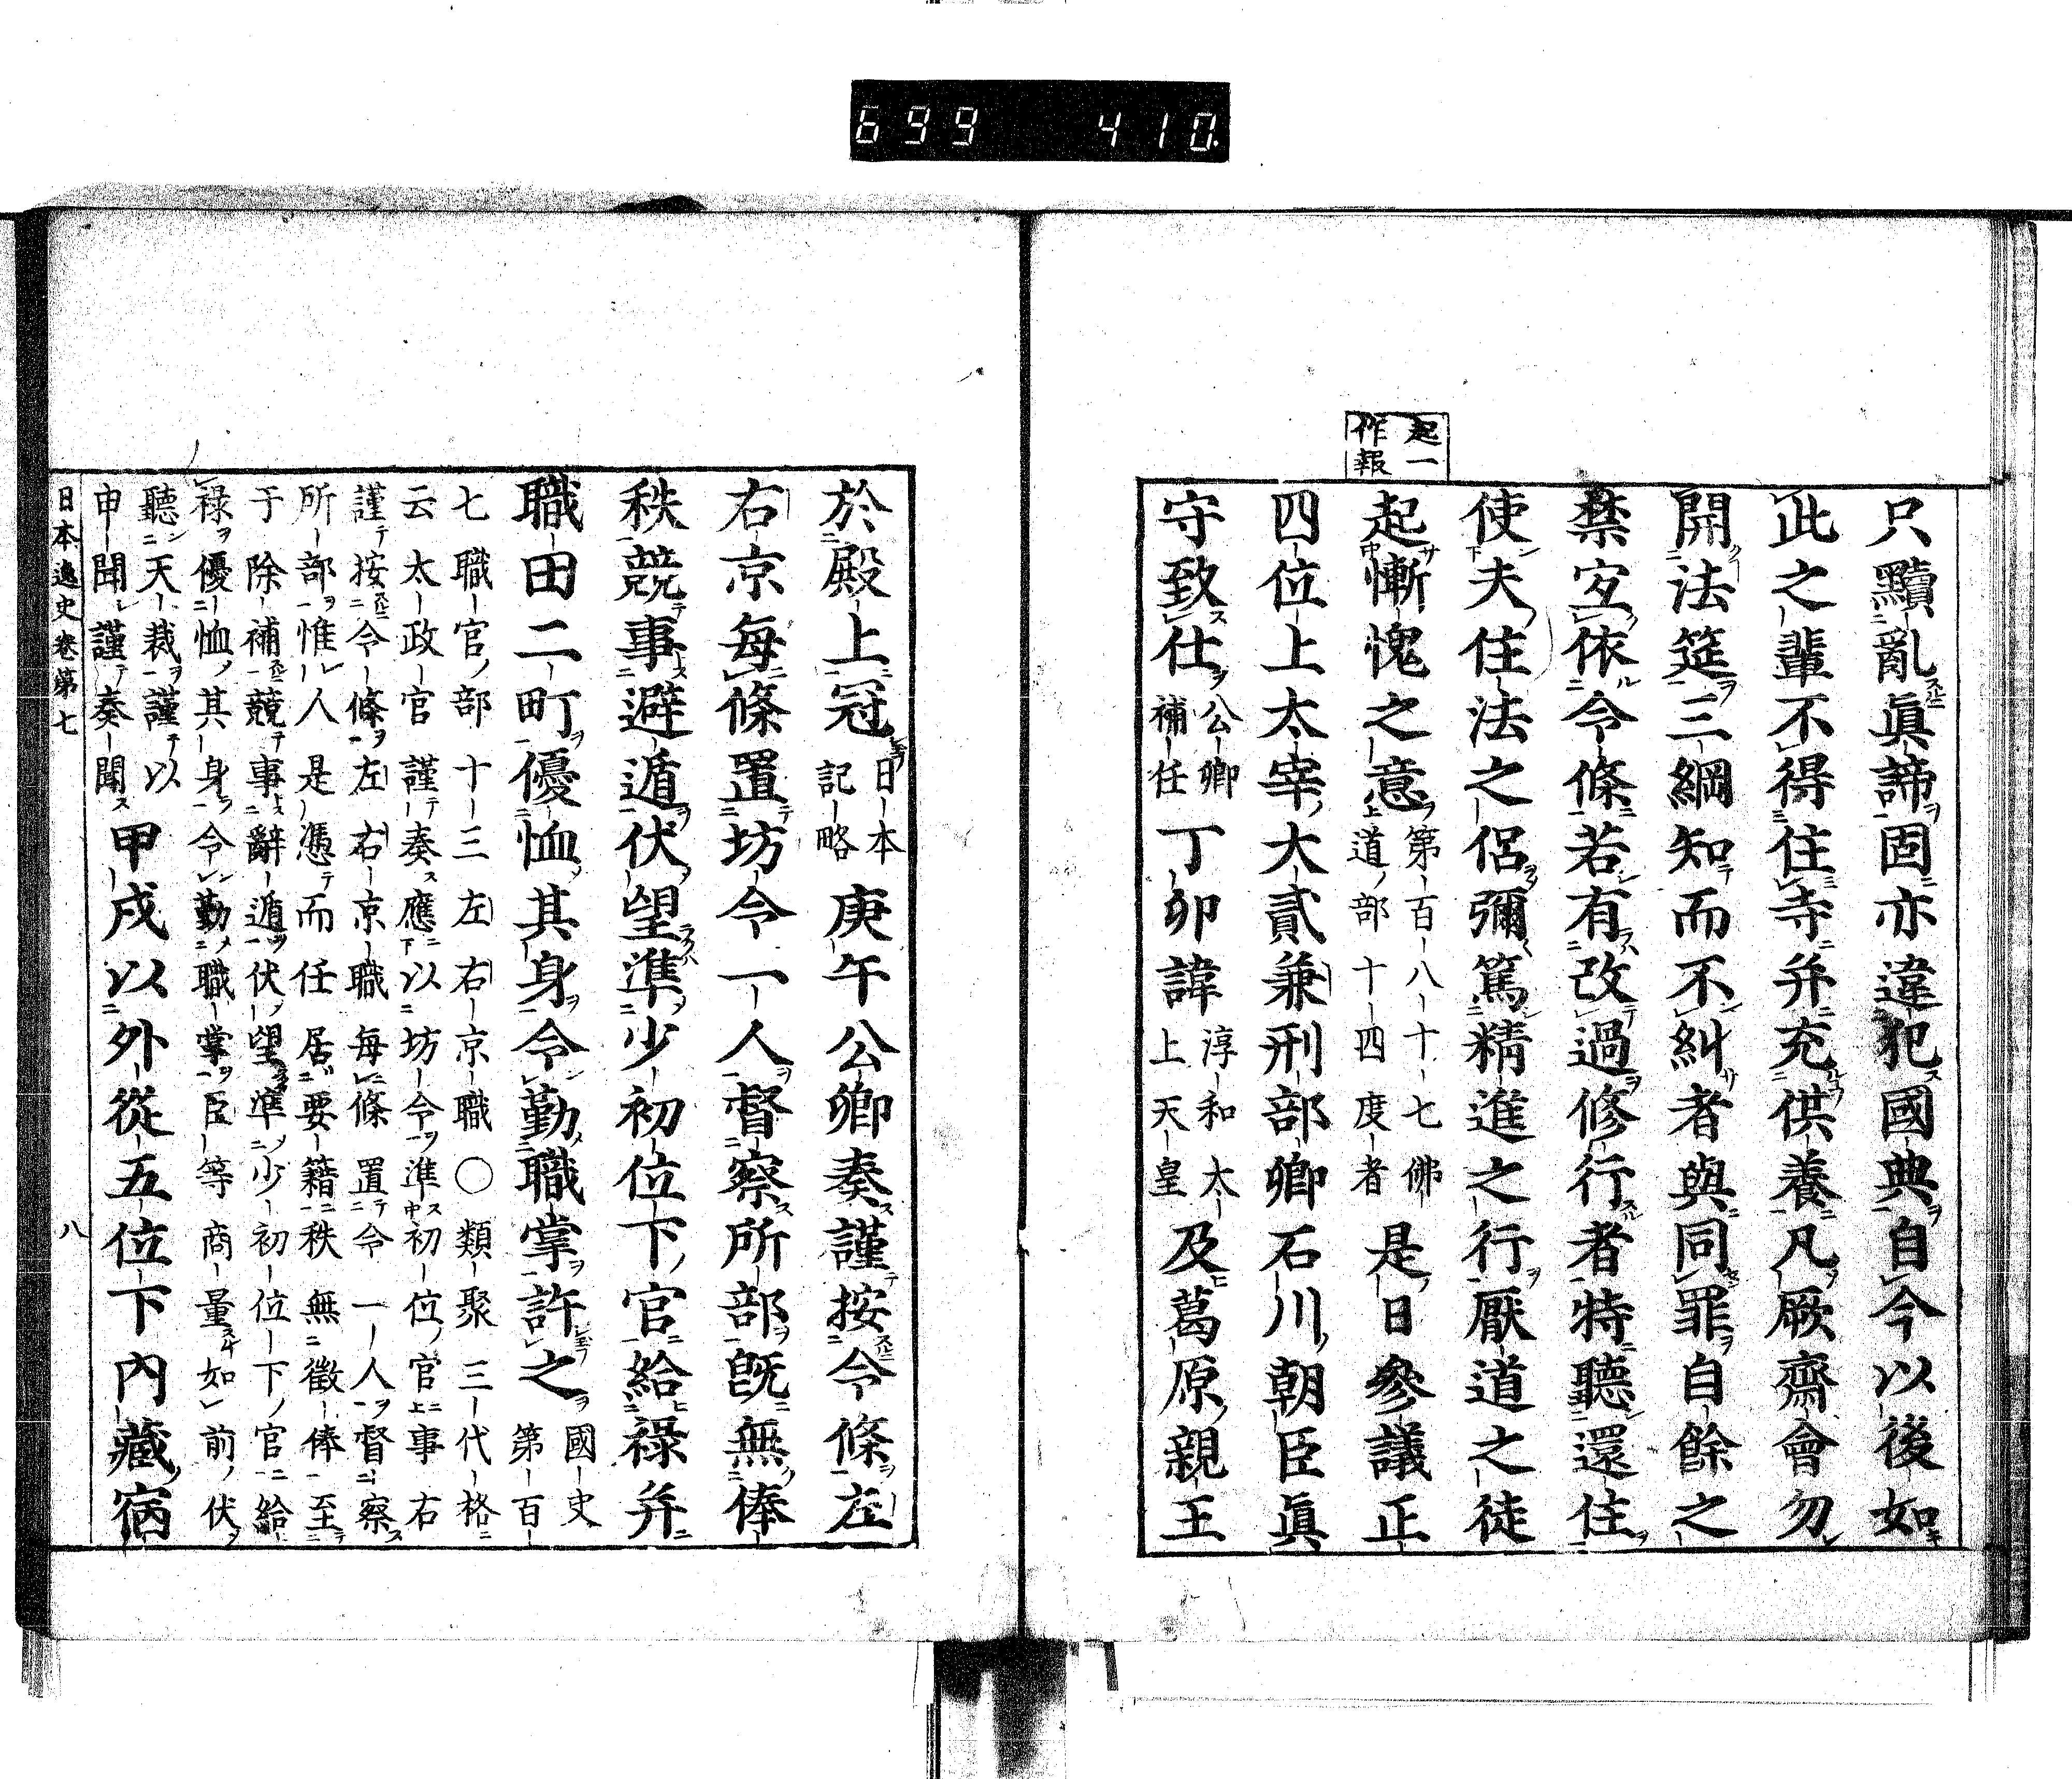 699 410
起一
作報
只黷亂眞諦固亦違犯國典自今以後如
此之輩不得住寺并充供養凡厥齋會勿
開法筵三綱知而不糾者與同罪自餘之
禁宜依令條若有改過修行者特聽還住
使夫住法之侶彌篤精進之行厭道之徒
起慚愧之意第百八十七佛道部十四度者是日參議正
四位上太宰大貳兼刑部卿石川朝臣眞
守致仕公卿補任丁卯諱淳和太上天皇及葛原親王
於殿上冠日本記略庚午公卿奏謹按令條左
右京每條置坊令一人督察所部旣無俸
秩競事避遁伏望準少初位下官給祿并
職田二町優恤其身令勤職掌許之國史第百
七職官部十三左右京職○類聚三代格
云太政官謹奏應以坊令準初位官事右
謹按令條左右京職每條置令一人督察
所部惟人是憑而任居要籍秩無徵俸至
于除補競事辭遁伏望準少初位下官給
祿優恤其身令勤職掌臣等商量如前伏
聽天裁謹以
申聞謹奏聞甲戌以外從五位下內藏宿
日本逸史卷第七 八